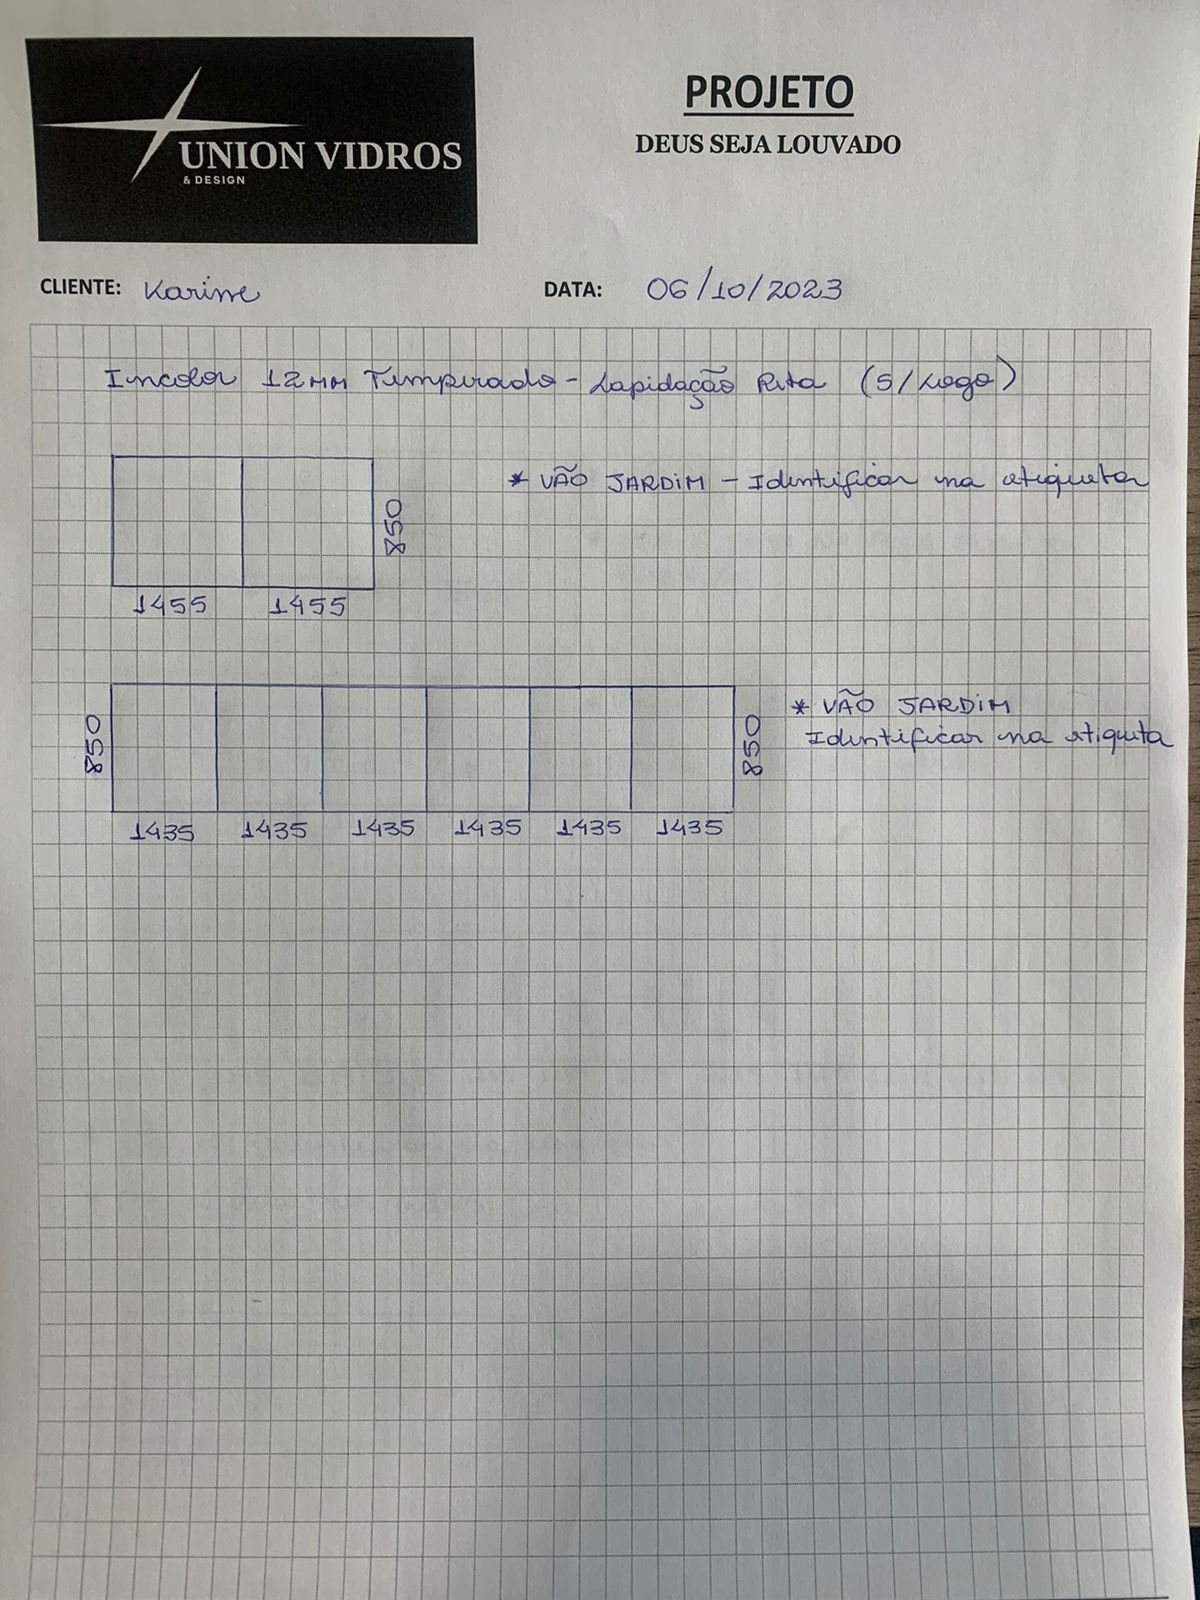 UNION VIDROS
& DESIGN
PROJETO
DEUS SEJA LOUVADO
CLIENTE: Karine
DATA: 06/10/2023
Incolor 12MM Temperado - Lapidação Reta (S/Logo)
* VÃO JARDIM - Identificar na etiqueta
850
1455 1455
850
850
* VÃO JARDIM
Identificar na etiqueta
1435 1435 1435 1435 1435 1435